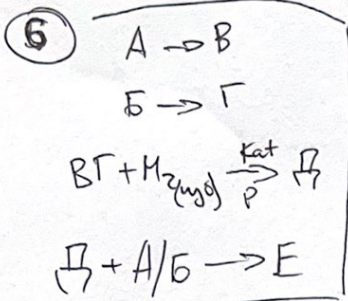 6
А → В
Б → Г
ВГ + H₂(изб) →[Kat / P] Д
Д + А/Б → Е